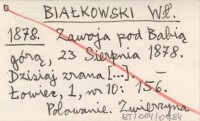 BIAŁKOWSKI Wł.
1878. Zawoja pod Babią
górą, 23 Sierpnia 1878.
Dzisiaj zrana [...]. —
Łowiec, 1, nr 10: 156.
Polowanie. Zwierzyna
BT/004/0484